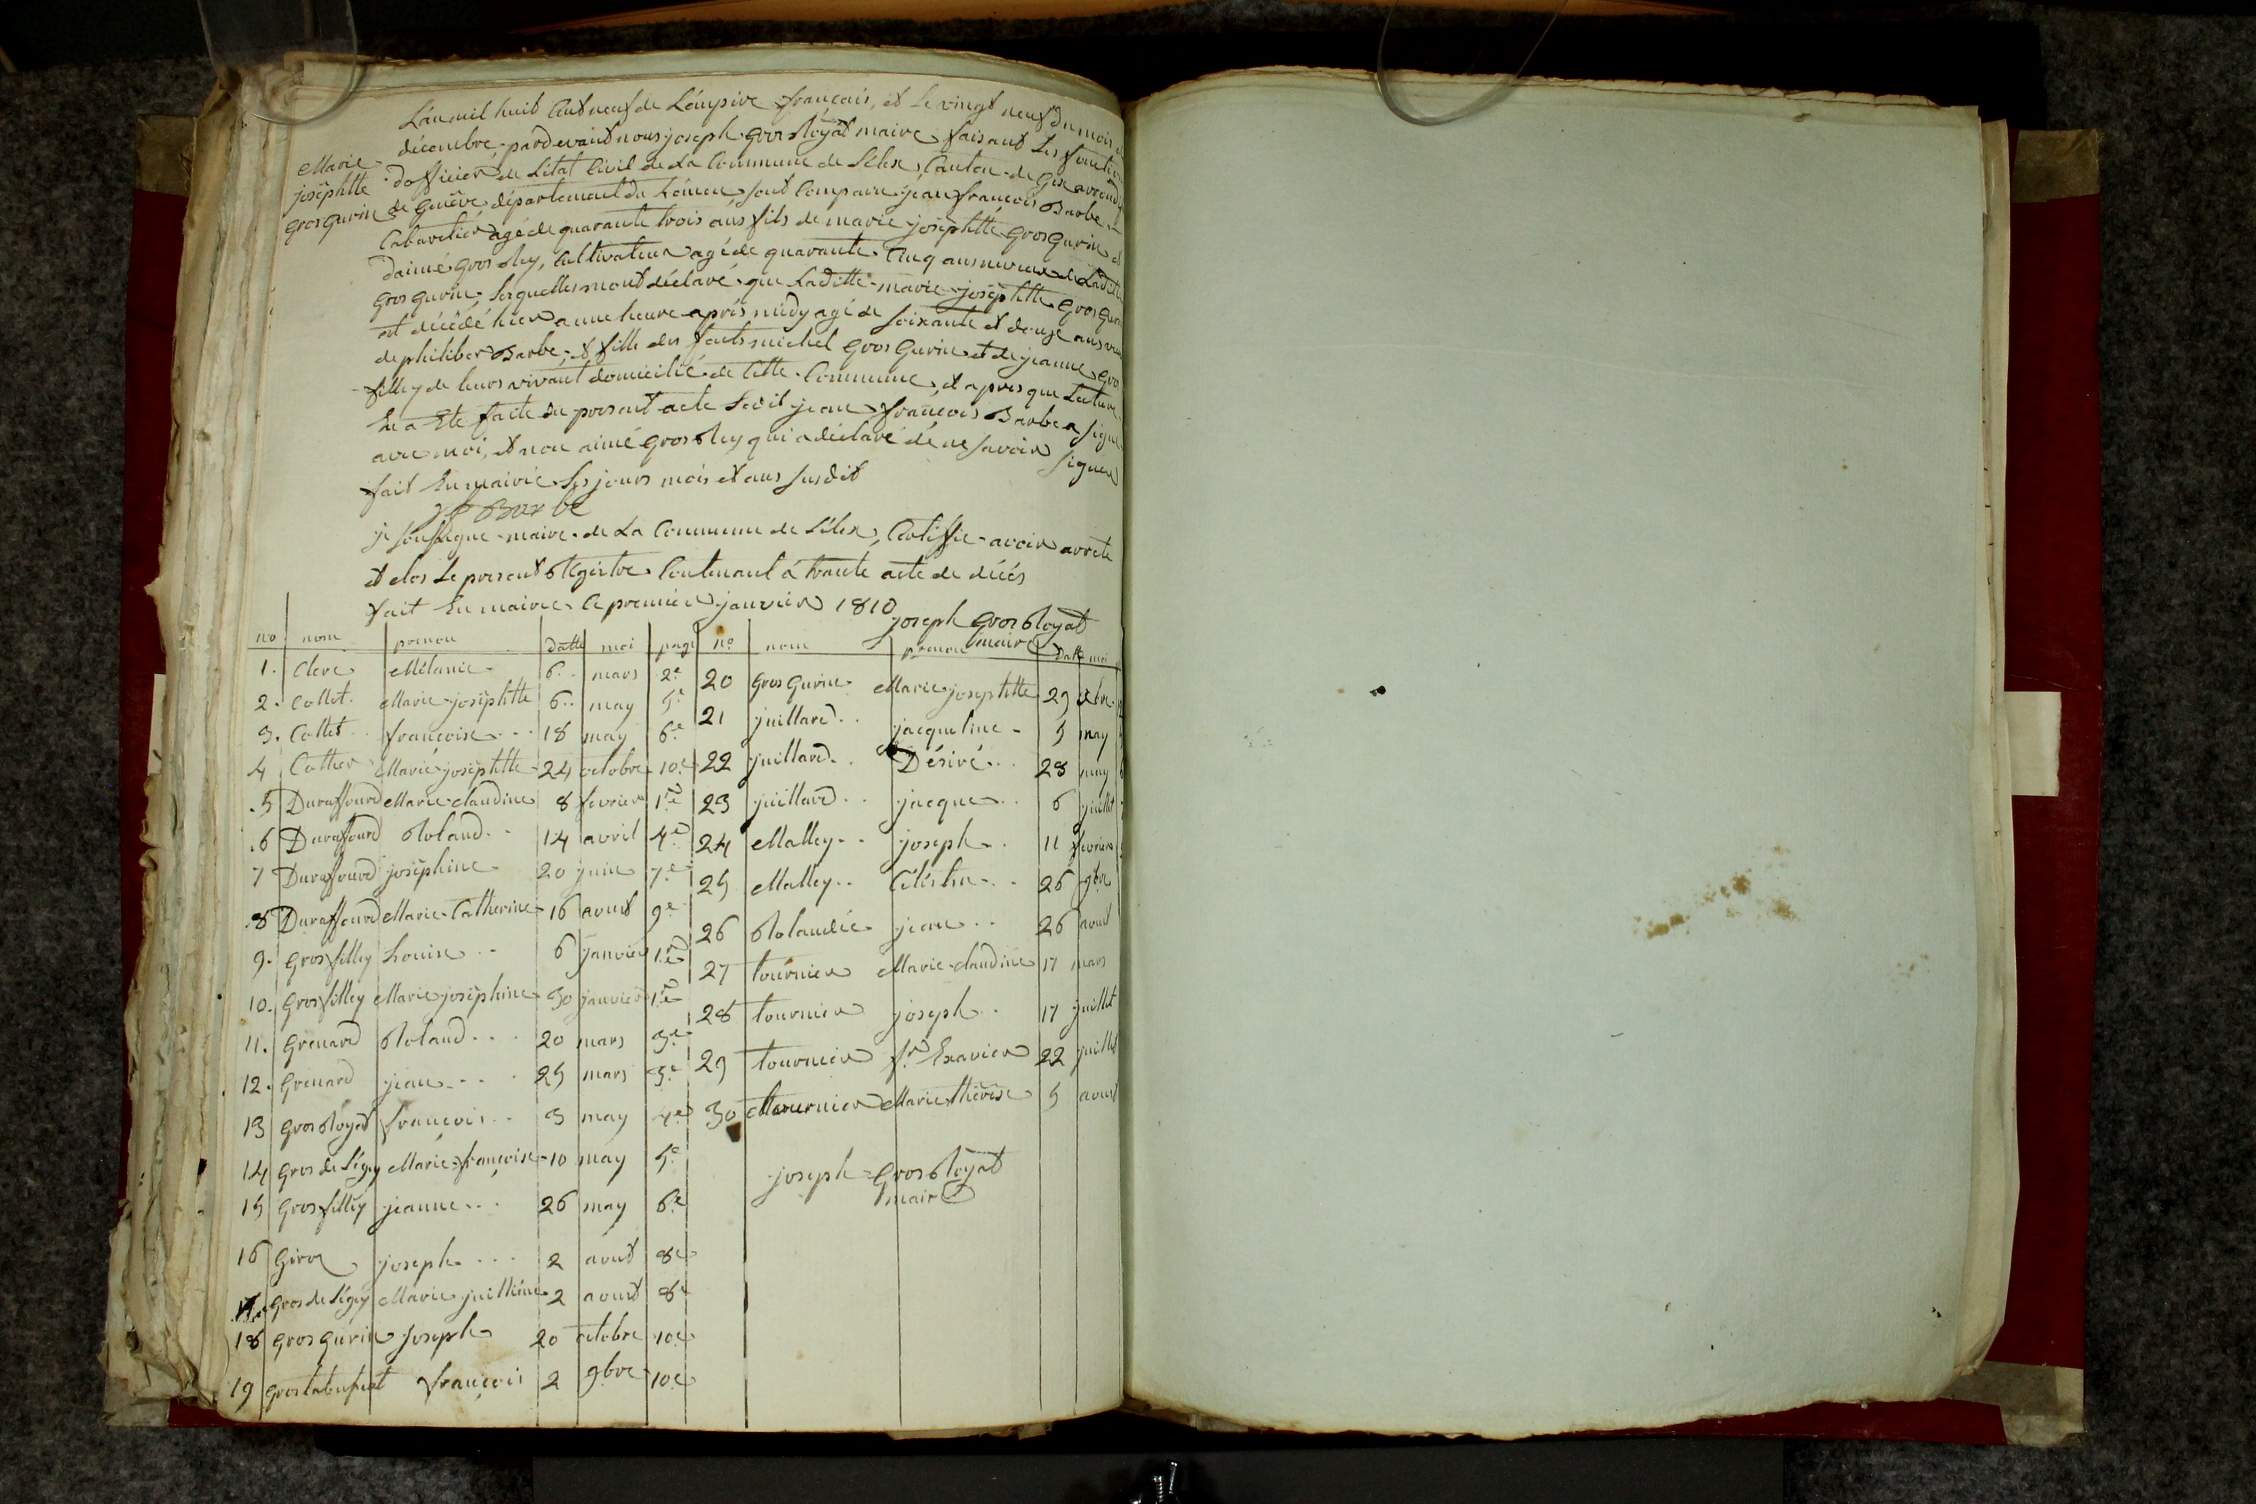 L'an mil huit Cent neuf de L'empire francais, et le vingt neuf du mois
décembre, pardevant nous joseph gros Royat maire faisant Les fonction
d'officier de L'état Civil de La Commune de Lélex, Canton de Gex arrond
de genêve département du Léman, sont Comparu jean françois Barbe
Cabaretier agé de quarante trois ans fils de marie josephtte grosgurin et
d'aimé gros Rey, Cultivateur agé de quarante Cinq ans neveux de Laditte
gros gurin, Lesquelles mont déclaré que Laditte marie josephtte gros gurin
est décédé hier a une heure après midy agé de soixante et douze ans
de philiber Barbe, et fille des feuts michel gros Gurin et de jeanne gros
filley de leurs vivant domicilié de cette Commune, et apres que Lecture
En a Eté faite du present acte Ledit jean françois Barbe a signé
avec moi, et non aimé gros Rey qui a déclaré de ne savoir signer
fait En mairie Les jours mois et ans susdit
Marie
josephtte
gros gurin
jf Barbe
je soussigne maire de La Commune de Lélex, Certiffie avoir arrete
et clos Le present Registre Contenant à trante acte de décés
fait En mairie Ce premier janvier 1810
joseph gros Royat
maire
no nom prenon datte moi page
1. Clerc Mélanie 6.. mars 2e
2. Collet. Marie josephtte 6.. may 5e
3. Collet.. francoise... 18 may 6e
4 Cottier Marie josephtte 24 octobre 10e
.5 Duraffourd Marie claudine 8 fevrier 1re
.6 Duraffourd Roland.. 14 avril 4e
7 Duraffourd joséphine 20 juin 7e
.8 Duraffourd Marie Catherine 16 aoust 9e
9. gros filley Louise .. 6 janvier 1re
10. gros filley Marie joséphine 30 janvier 1re
11. Grenard Roland.... 20 mars 3e
12. Grenard jean.... 25 mars 3e
13 gros Royat françois.. 3 may 4e
14 gros de Ligny Marie françoise 10 may 5e
15 gros filley jeanne... 26 may 6e
16 Girod joseph.... 2 aoust 8e
17 gros de Ligny Marie juillienne 2 aoust 8e
18 gros gurin Joseph 20 octobre 10e
19 françois 2 9bre 10e
no nom prenon datte moi
20 gros gurin Marie josephtte 29 xbre
21 juillard.. jacqueline 5 may
22 juillard.. Désiré... 28 may
23 juillard.. jacque.. 6 juillet
24 Malley.. joseph.. 11 fevrier
25 Malley.. Céléstin... 26 9bre
26 Rolandée jean... 26 aoust
27 tournier Marie claudine 17 mars
28 tournier joseph.. 17 juillet
29 tournier fr. Exavier 22 juillet
30 tournier Marie thérèse 5 aoust
joseph gros Royat
maire